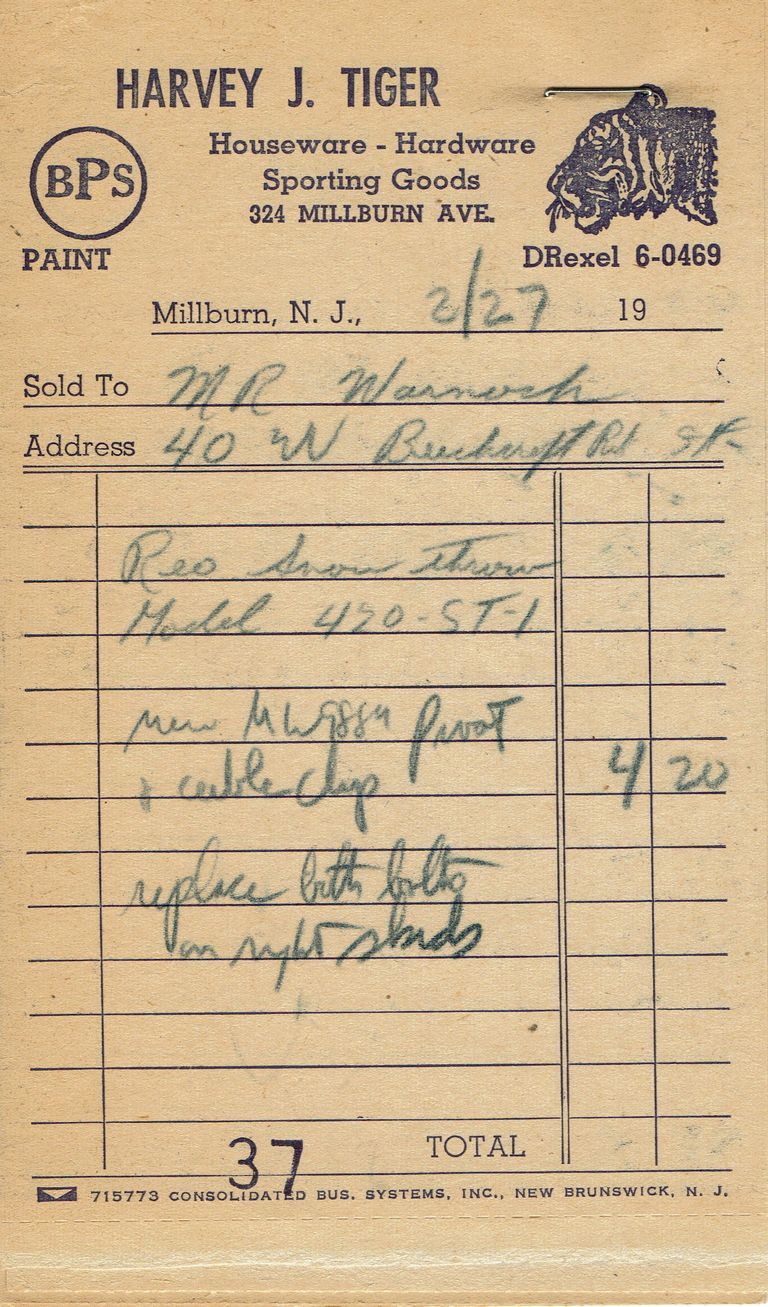 HARVEY J. TIGER
Houseware - Hardware
Sporting Goods
324 MILLBURN AVE.
BPS
PAINT
DRexel 6-0469
Millburn, N. J., 2/27 19
Sold To MR Warnock
Address 40 W Beechcroft Rd
Reo Snow throw
Model 420-ST-1
new pivot
+ cable clip 4 20
replace both bolts
on right
TOTAL
37
715773 CONSOLIDATED BUS. SYSTEMS, INC., NEW BRUNSWICK, N. J.